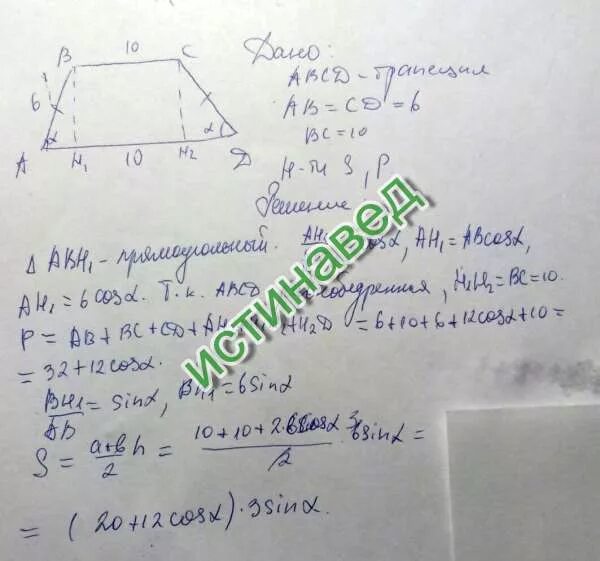 B 10 C
6
α α
A H₁ 10 H₂ D
Дано:
ABCD - трапеция
AB = CD = 6
BC = 10
Н-ти S, P
Решение
Δ ABH₁ - прямоугольный. AH₁ cosα, AH₁ = ABcosα,
AH₁ = 6cosα. Т.к. ABCD , H₁H₂ = BC = 10.
P = AB + BC + CD + AH + H₂D = 6+10+6+12cosα+10 =
= 32+12cosα.
BH₁ = sinα, BH₁ = 6sinα
S = a+b h = 10+10+2·6cosα 3 6sinα =
2 2
= (20+12cosα)·3sinα.
ИСТИНАВЕД